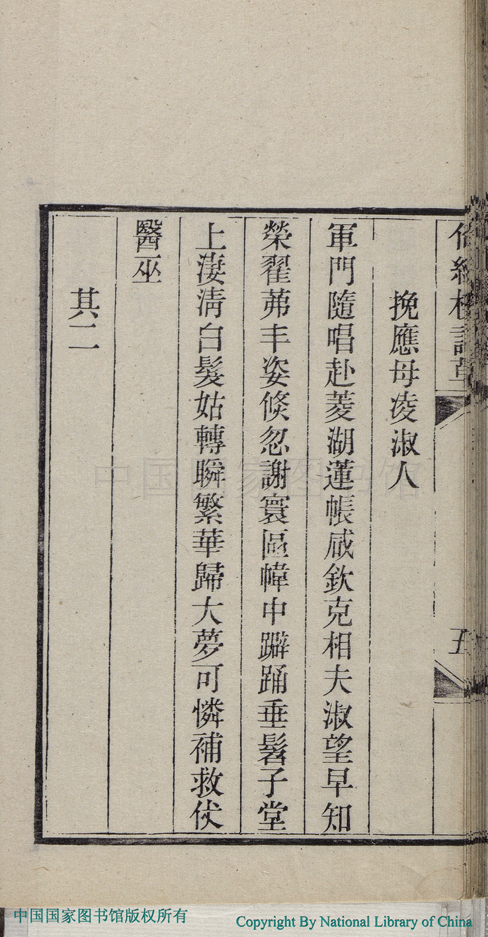 樓詩草
五
挽應母凌淑人
軍門隨唱赴菱湖蓮帳咸欽克相夫淑望早知
榮翟茀丰姿倏忽謝寰區幃中躃踊垂髫子堂
上淒清白髮姑轉瞬繁華歸大夢可憐補救仗
醫巫
其二
中国国家图书馆
中国国家图书馆版权所有
Copyright By National Library of China